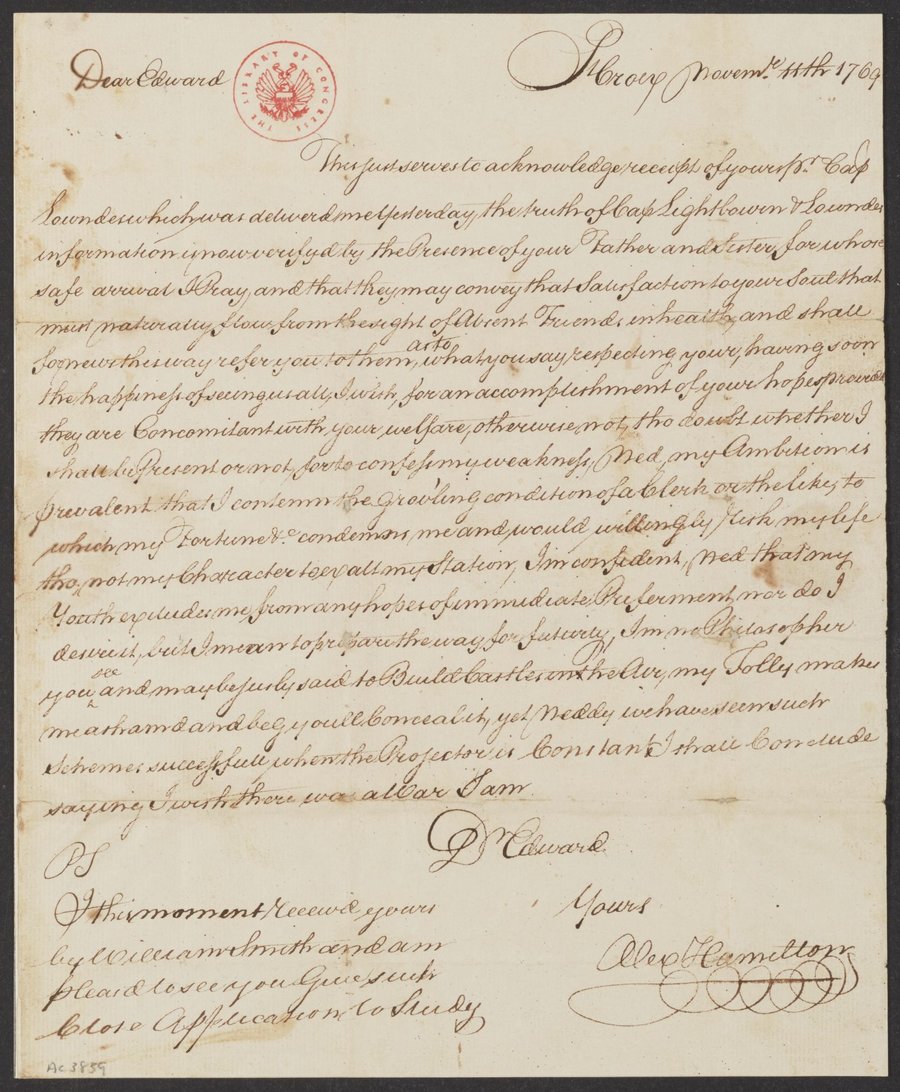 Dear Edward
THE LIBRARY OF CONGRESS
St Croix Novemr. 11th 1769
This just serves to acknowledge receipt of yours pr. Cap
Lowndes which was deliverd me Yesterday, the truth of Cap Lightbowrn & Lowndes
information is now verifyd by the Presence of your Father and Sister, for whose
safe arrival I Pray, and that they may convey that Satisfaction to your Soul that
must naturally flow from the sight of Absent Friends in health, and shall
for news this way refer you to them, as to what you say respecting your, having soon
the happiness of seeing us all, I wish, for an accomplishment of your hopes provided
they are Concomitant with your welfare, otherwise not, tho doubt whether I
shall be Present or not, for to confess my weakness, Ned, my Ambition is
prevalent that I contemn the grov'ling condition of a Clerk or the like, to
which my Fortune &c. condemns me and would willingly risk my life
tho, not my Character to exalt my Station, Im confident, Ned that my
Youth excludes me from any hopes of immediate Preferment, nor do I
desire it, but I mean to prepare the way for futurity, Im no Philosopher
you see and may be jusly said to Build Castles in the Air, my Folly makes
me ashamd and beg youll Conceal it, yet Neddy we have seen such
Schemes successfull when the Projector is Constant I shall Conclude
saying I wish there was a War I am
Dr Edward
PS
Yours
I this moment receivd yours
by William Smith and am
Alex Hamilton
pleasd to see you Give such
Close Application to Study
Ac 3859